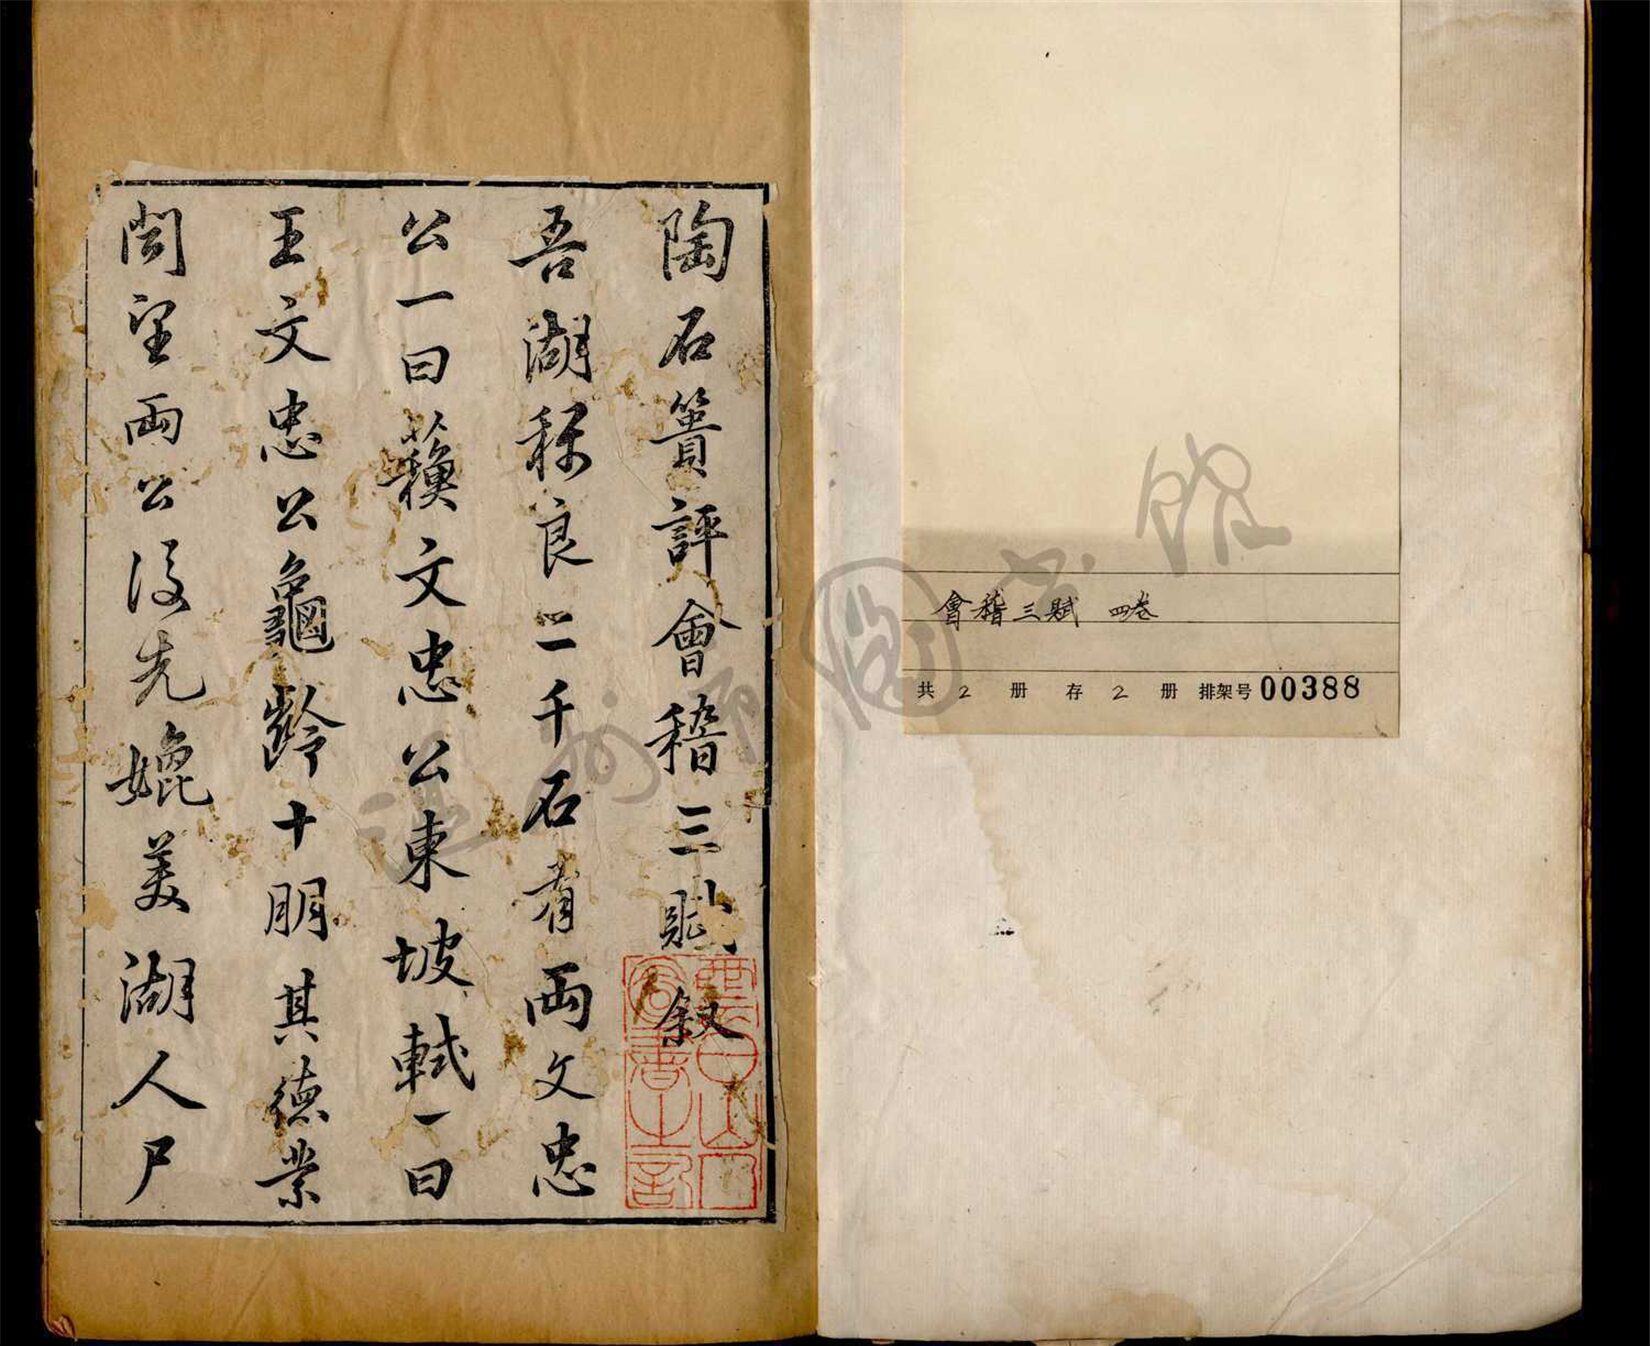 陶石簣評會稽三賦叙
吾湖稱良二千石者兩文忠
公一曰蘓文忠公東坡軾一曰
王文忠公龜齡十朋其德業
聞望兩公後先媲美湖人尸
會稽三賦 四卷
共 2 册 存 2 册 排架号 00388